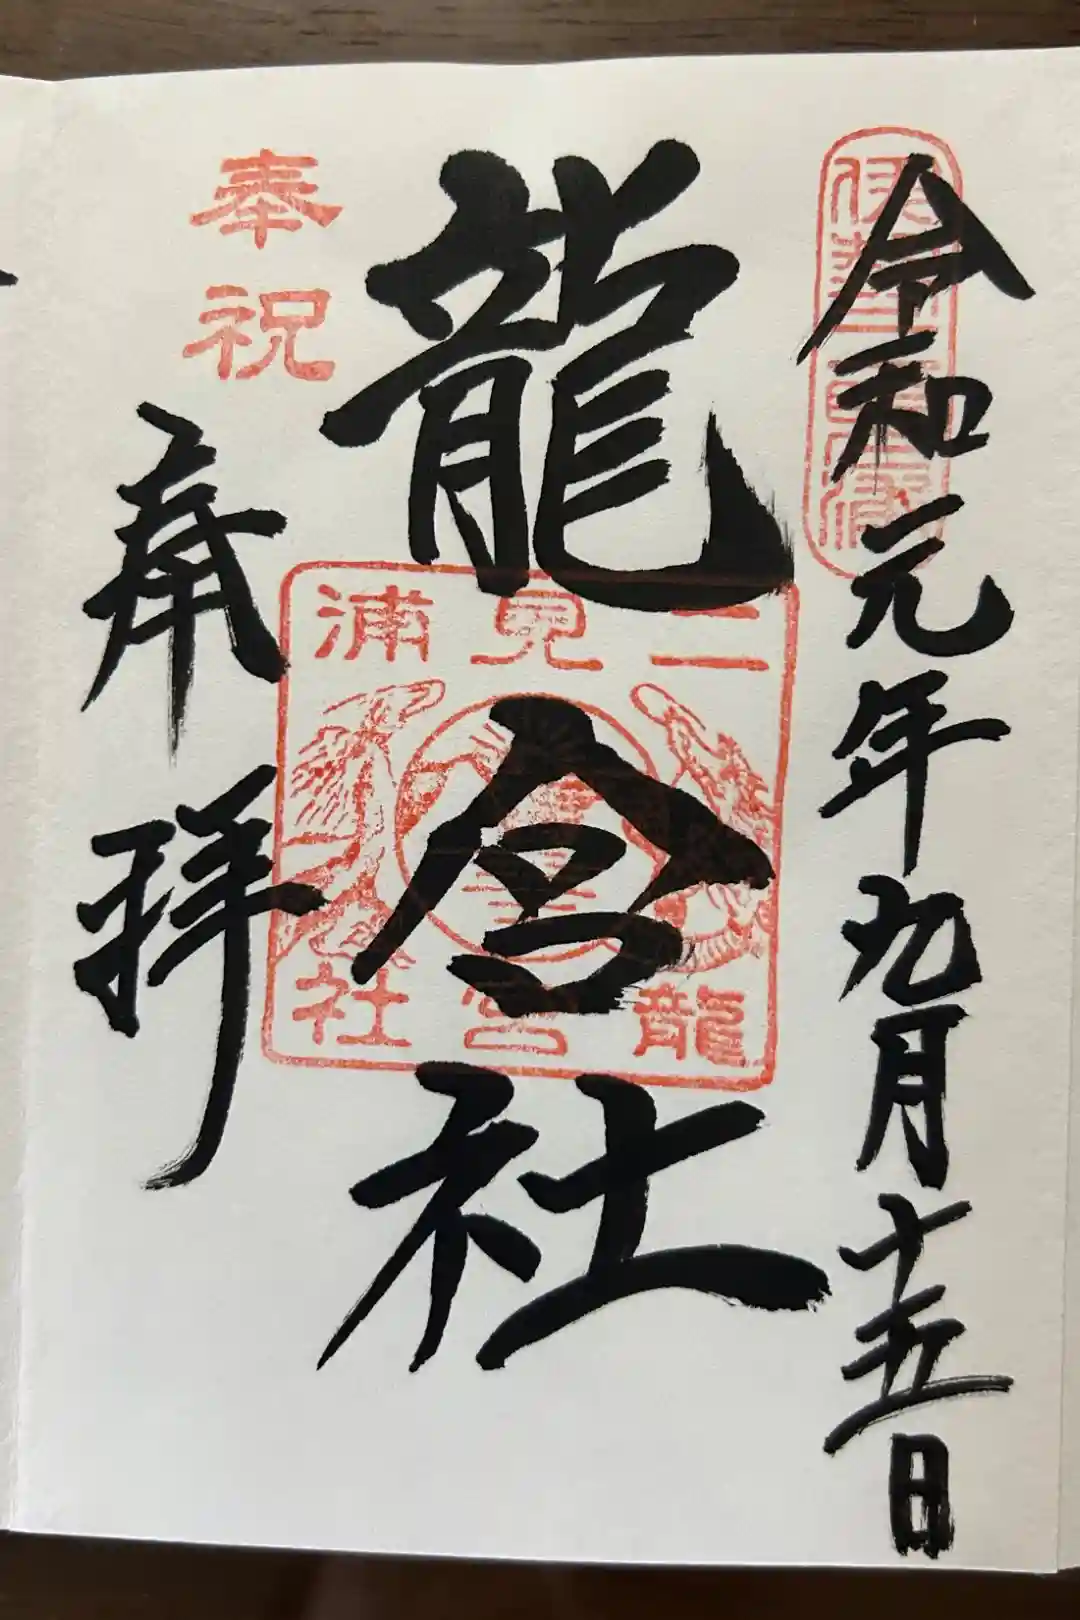 令和元年九月十五日
龍宮社
二見浦
龍宮社
奉祝
奉拝